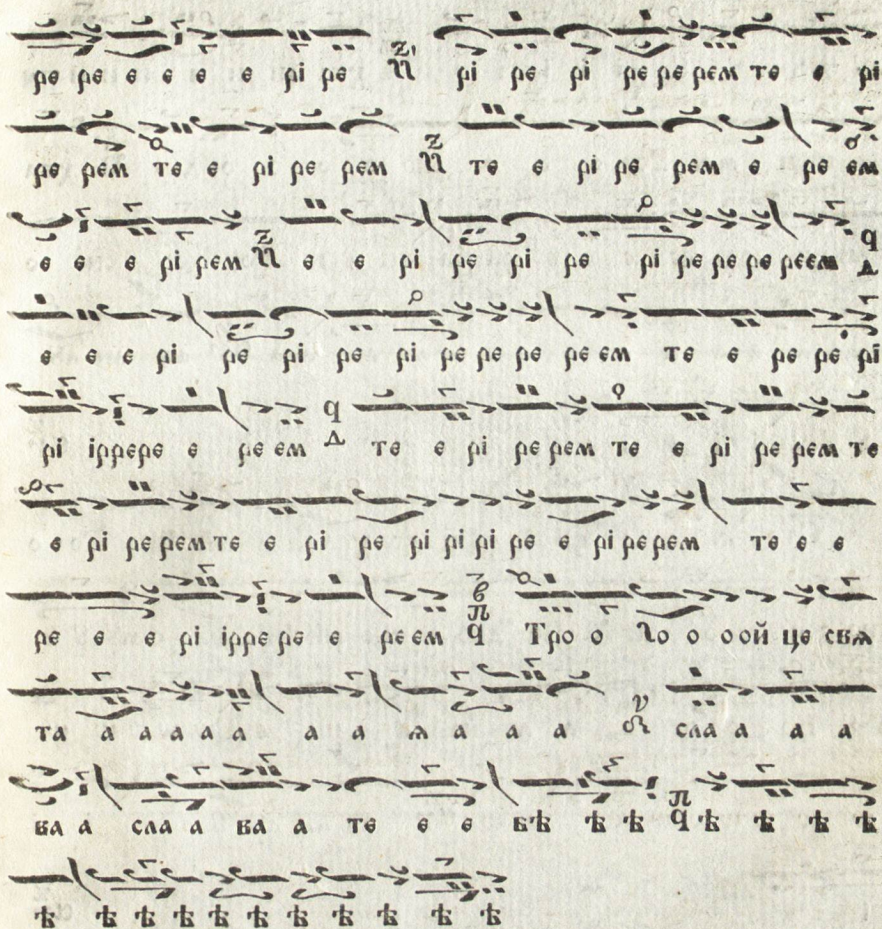 ре ре е е е е рі ре рі ре рі ре ре рем те е рі
ре рем те е рі ре рем те е рі ре рем е ре ем
е е е рі рем е е рі ре рі ре рі ре ре ре реем
е е е рі ре рі ре рі ре ре ре ре ем те е ре ре рі
рі іррере е ре ем те е рі ре рем те е рі ре рем те
е рі ре рем те е рі ре рі рі рі ре е рі ре рем те е е
ре е е рі ірре ре е ре ем Тро о о о оой це свѧ
та а а а а а а а ѧ а а а сла а а а
ва а сла а ва а те е е бѣ ѣ ѣ ѣ ѣ ѣ ѣ
ѣ ѣ ѣ ѣ ѣ ѣ ѣ ѣ ѣ ѣ